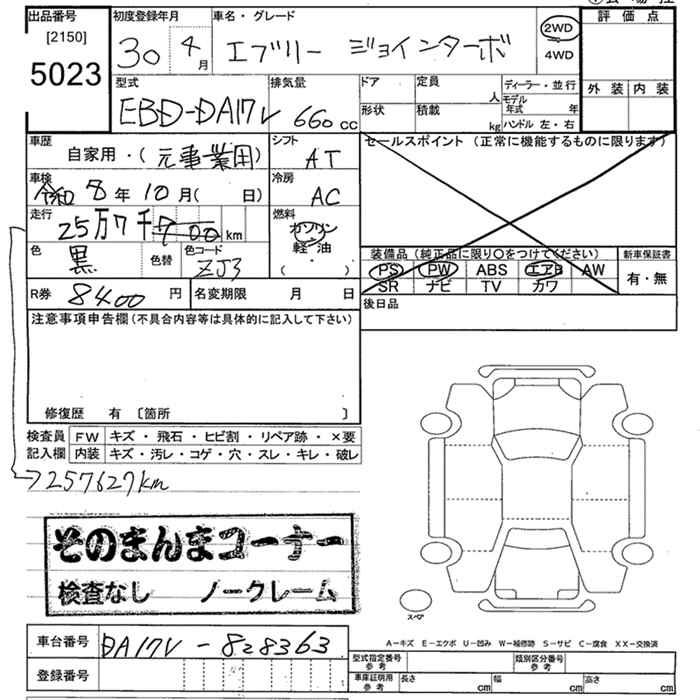 出品番号
[2150]
5023
初度登録年月
30 4 月
車名・グレード
エブリー ジョインターボ
2WD
4WD
評価点
外装 内装
型式
EBD-DA17V
排気量
660 cc
ドア
形状
定員
人
積載
kg
ディーラー・並行
モデル年式 年
ハンドル 左・右
車歴
自家用・(元事業用)
シフト
AT
セールスポイント (正常に機能するものに限ります)
車検
令和 8年 10月( 日)
冷房
AC
走行
25万7千700 km
燃料
ガソリン
軽・油
( ・ )
色
黒
色替
色コード
ZJ3
装備品 (純正品に限り○をつけてください)
PS PW ABS エアB AW
SR ナビ TV カワ
新車保証書
有・無
R券 8400 円
名変期限 月 日
後日品
注意事項申告欄 (不具合内容等は具体的に記入して下さい)
修復歴 有 [箇所 ]
検査員
記入欄
FW キズ・飛石・ヒビ割・リペア跡・×要
内装 キズ・汚レ・コゲ・穴・スレ・キレ・破レ
257627km
そのまんまコーナー
検査なし ノークレーム
スペア
A−キズ E−エクボ U−凹み W−補修跡 S−サビ C−腐食 XX−交換済
車台番号 DA17V-828363
登録番号
型式指定番号
参考
類別区分番号
参考
車庫証明用
参考
長さ cm
幅 cm
高さ cm